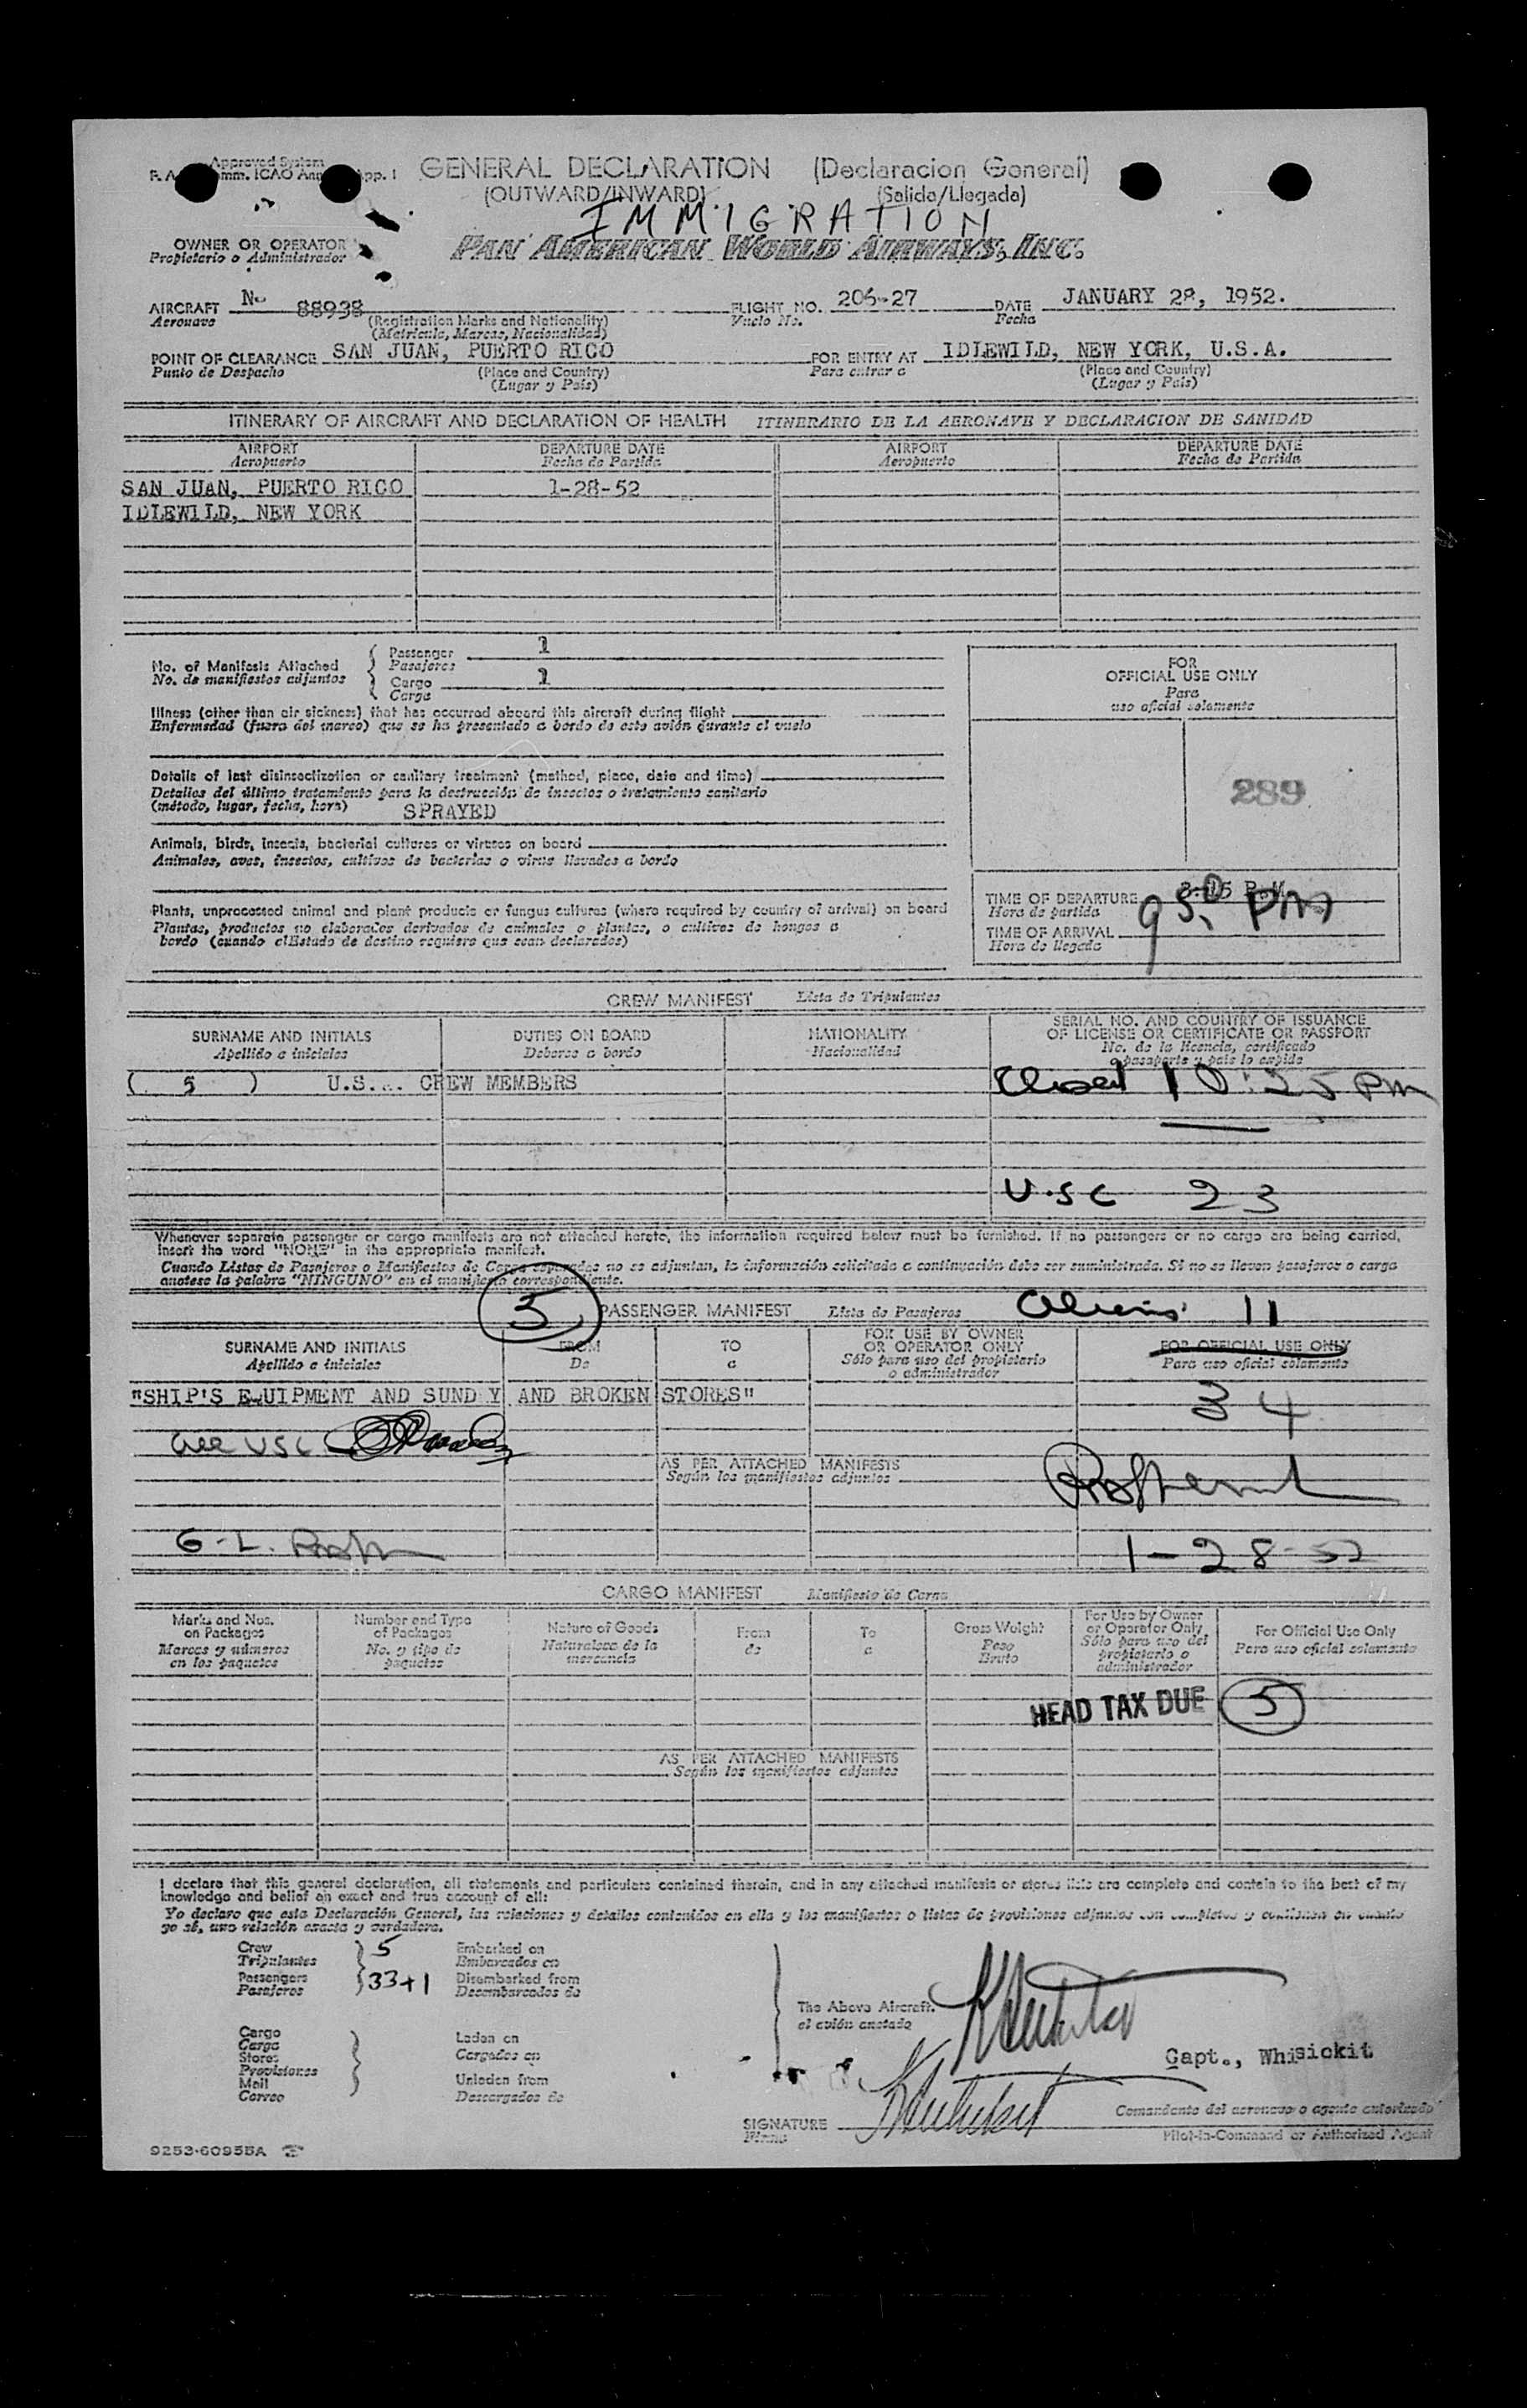 Approved System
GENERAL DECLARATION (Declaracion General)
(OUTWARD/INWARD) (Salida/Llegada)
IMMIGRATION
OWNER OR OPERATOR PAN AMERICAN WORLD AIRWAYS, INC.
Propietario o Administrador
AIRCRAFT N- 88938 FLIGHT NO. 206-27 DATE JANUARY 28, 1952.
Aeronave (Registration Marks and Nationality) Vuelo No. Fecha
(Matricula, Marcas, Nacionalidad)
POINT OF CLEARANCE SAN JUAN, PUERTO RICO FOR ENTRY AT IDLEWILD, NEW YORK, U.S.A.
Punto de Despacho (Place and Country) Para entrar a (Place and Country)
(Lugar y Pais) (Lugar y Pais)
ITINERARY OF AIRCRAFT AND DECLARATION OF HEALTH ITINERARIO DE LA AERONAVE Y DECLARACION DE SANIDAD
AIRPORT DEPARTURE DATE AIRPORT DEPARTURE DATE
Aeropuerto Fecha de Partida Aeropuerto Fecha de Partida
SAN JUAN, PUERTO RICO 1-28-52
IDLEWILD, NEW YORK
No. of Manifests Attached Passenger 1
No. de manifiestos adjuntos Pasajeros
Cargo 1
Carga
FOR
OFFICIAL USE ONLY
Para
uso oficial solamente
Illness (other than air sickness) that has occurred aboard this aircraft during flight
Enfermedad (fuera del mareo) que se ha presentado a bordo de este avión durante el vuelo
Details of last disinsectization or sanitary treatment (method, place, date and time)
Detalles del último tratamiento para la destrucción de insectos o tratamiento sanitario
(método, lugar, fecha, hora) SPRAYED
289
Animals, birds, insects, bacterial cultures or viruses on board
Animales, aves, insectos, cultivos de bacterias o virus llevados a bordo
Plants, unprocessed animal and plant products or fungus cultures (where required by country of arrival) on board
Plantas, productos no elaborados derivados de animales o plantas, o cultivos de hongos a
bordo (cuando elEstado de destino requiere que sean declarados)
TIME OF DEPARTURE P.M.
Hora de partida 950 PM
TIME OF ARRIVAL
Hora de llegada
CREW MANIFEST Lista de Tripulantes
SURNAME AND INITIALS DUTIES ON BOARD NATIONALITY SERIAL NO. AND COUNTRY OF ISSUANCE
Apellido e iniciales Deberes a bordo Nacionalidad OF LICENSE OR CERTIFICATE OR PASSPORT
No. de la licencia, certificado
o pasaporte y pais lo expide
( 5 ) U.S.A. CREW MEMBERS Closed 10:25 PM
U.S C 23
Whenever separate passenger or cargo manifests are not attached hereto, the information required below must be furnished. If no passengers or no cargo are being carried,
insert the word "NONE" in the appropriate manifest.
Cuando Listas de Pasajeros o Manifiestos de Carga separadas no se adjuntan, la información solicitada a continuación debe ser suministrada. Si no se llevan pasajeros o carga
anotese la palabra "NINGUNO" en el manifiesto correspondiente.
5 PASSENGER MANIFEST Lista de Pasajeros Aliens 11
SURNAME AND INITIALS FROM TO FOR USE BY OWNER FOR OFFICIAL USE ONLY
Apellido e iniciales De a OR OPERATOR ONLY Para uso oficial solamente
Sólo para uso del propietario
o administrador
"SHIP'S EQUIPMENT AND SUND Y AND BROKEN STORES" 34
all USC
AS PER ATTACHED MANIFESTS
Según los manifiestos adjuntos
G. L. 1-28-52
CARGO MANIFEST Manifiesto de Carga
Marks and Nos. Number and Type Nature of Goods From To Gross Weight For Use by Owner For Official Use Only
on Packages of Packages Naturaleza de la de a Peso or Operator Only Para uso oficial solamente
Marcas y números No. y tipo de mercancia Bruto Sólo para uso del
en los paquetes paquetes propietario o
administrador
HEAD TAX DUE 5
AS PER ATTACHED MANIFESTS
Según los manifiestos adjuntos
I declare that this general declaration, all statements and particulars contained therein, and in any attached manifests or stores lists are complete and contain to the best of my
knowledge and belief an exact and true account of all:
Yo declaro que esta Declaración General, las relaciones y detalles contenidos en ella y los manifiestos o listas de provisiones adjuntos son completos y contienen en cuanto
yo sé, una relación exacta y verdadera.
Crew 5 Embarked on
Tripulantes Embarcados en
Passengers 33+1 Disembarked from
Pasajeros Desembarcados de
The Above Aircraft.
el avión anotado
Cargo Laden on
Carga Cargados en
Stores
Provisiones
Mail Unladen from
Correo Descargados de
Capt., Whisickit
Comandante del aeronave o agente autorizado
SIGNATURE
Firma Pilot-in-Command or Authorized Agent
9253-60955A